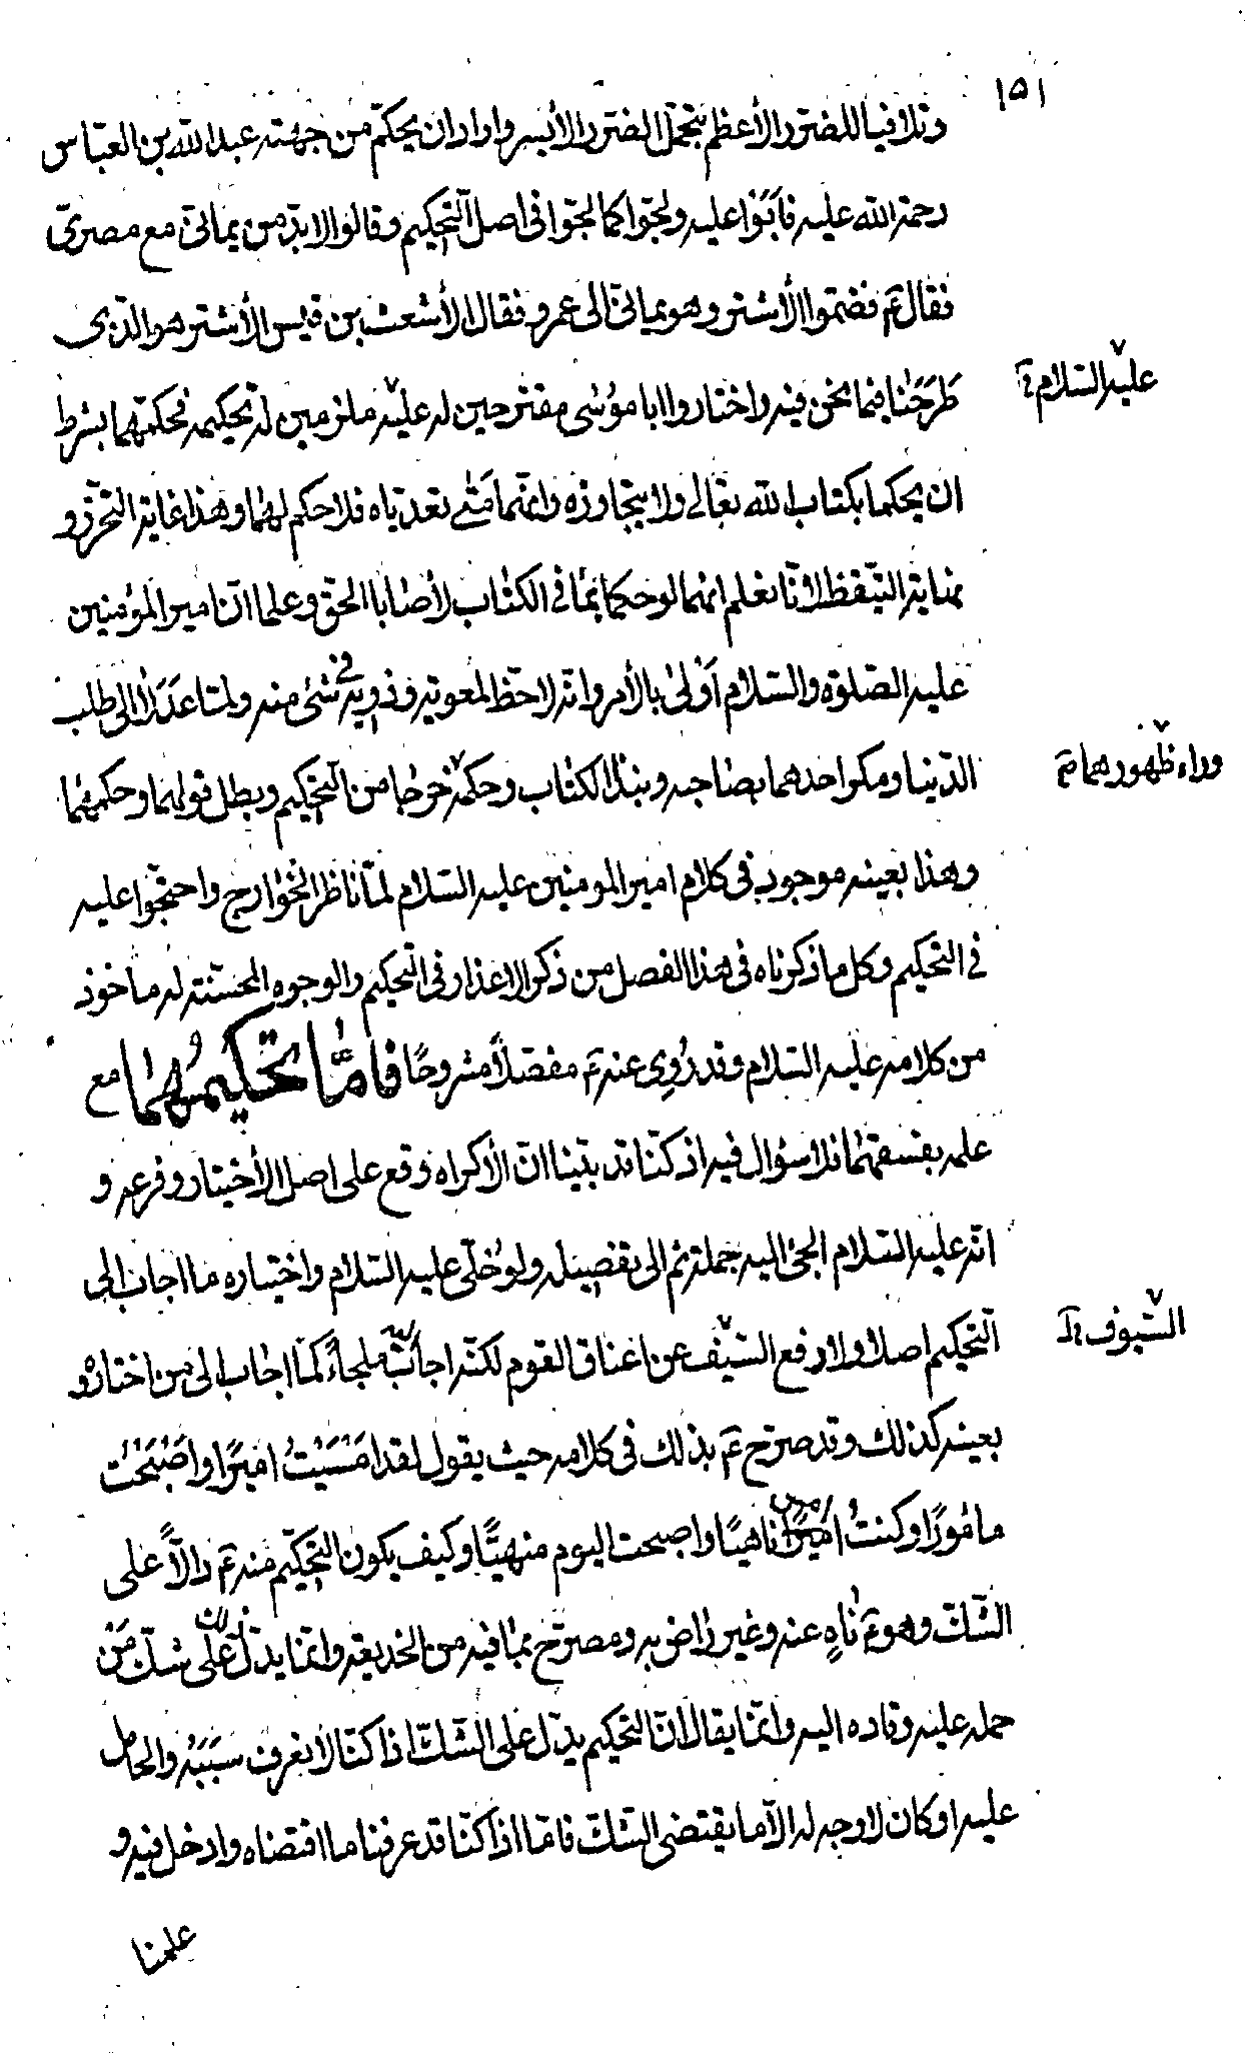 ١٥١
وتلافيا للضرر الأعظم بتحمل الضرر الأيسر واراد ان يحكم من جهته عبد الله بن العباس
رحمة الله عليه فأبوا عليه ولجوا كما لجوا في اصل التحكيم وقالوا لابد من يماني مع مصري
فقال ع فضموا الأشتر وهو يماني الى عمرو فقال الأشعث بن قيس الأشتر هو الذي
عليه السلام
طرحنا فيما نحن فيه واختاروا ابا موسى مقترحين له عليه ملزمين له تحكيمه فحكمهما بشرط
ان يحكما بكتاب الله تعالى ولا يتجاوزه وانهما متى تعدياه فلا حكم لهما وهذا غاية التحرز و
نهاية التيقظ لانا نعلم انهما لو حكما بما في الكتاب لأصابا الحق وعلما ان امير المؤمنين
عليه الصلوة والسلام أولى بالأمر وانه لا حظ لمعوية وذويه في شئ منه ولما عدلا الى طلب
وراء ظهورهما
الدنيا ومكر احدهما بصاحبه ونبذا الكتاب وحكمه خرجا من التحكيم وبطل قولهما وحكمهما
وهذا بعينه موجود في كلام امير المومنين عليه السلام لما ناظر الخوارج واحتجوا عليه
في التحكيم وكل ما ذكرناه في هذا الفصل من ذكر الاعذار في التحكيم والوجوه المحسنة له ماخوذ
من كلامه عليه السلام وقد رُوِي عنه ع مفصلاً مشروحًا فامّا تحكيمُهما مع
علمه بفسقهما فلا سؤال فيه اذ كنا قد بينا ان الأكراه وقع على اصل الأختيار وفرعه و
انه عليه السلام الجئ اليه جملة ثم الى تفصيله ولو خُلّى عليه السلام واختياره ما اجاب الى
السيوف
التحكيم اصلا ولا رفع السيف عن اعناق القوم لكنه اجاب اليه ملجاءً كما اجاب الى من اختاره و
بعينه كذلك وقد صرح ع بذلك في كلامه حيث يقول لقد امسَيْتُ اميرًا واصْبَحْتُ
مامُورًا وكنتُ امس ناهيًا واصبحت اليوم منهيًّا وكيف يكون التحكيم منه ع دالاًّ على
الشّك وهو ع ناهٍ عنه وغير راض به ومصرح بما فيه من الخديعة وانما يدل ذلك على شك مَن
حمله عليه وقاده اليه وانما يقال ان التحكيم يدل على الشك اذا كنا لا نعرف سَبَبَه والحامل
عليه او كان لا وجه له الا ما يقتضي الشك فاما اذا كنا قد عرفنا ما اقتضاه وادخل فيه و
علمنا